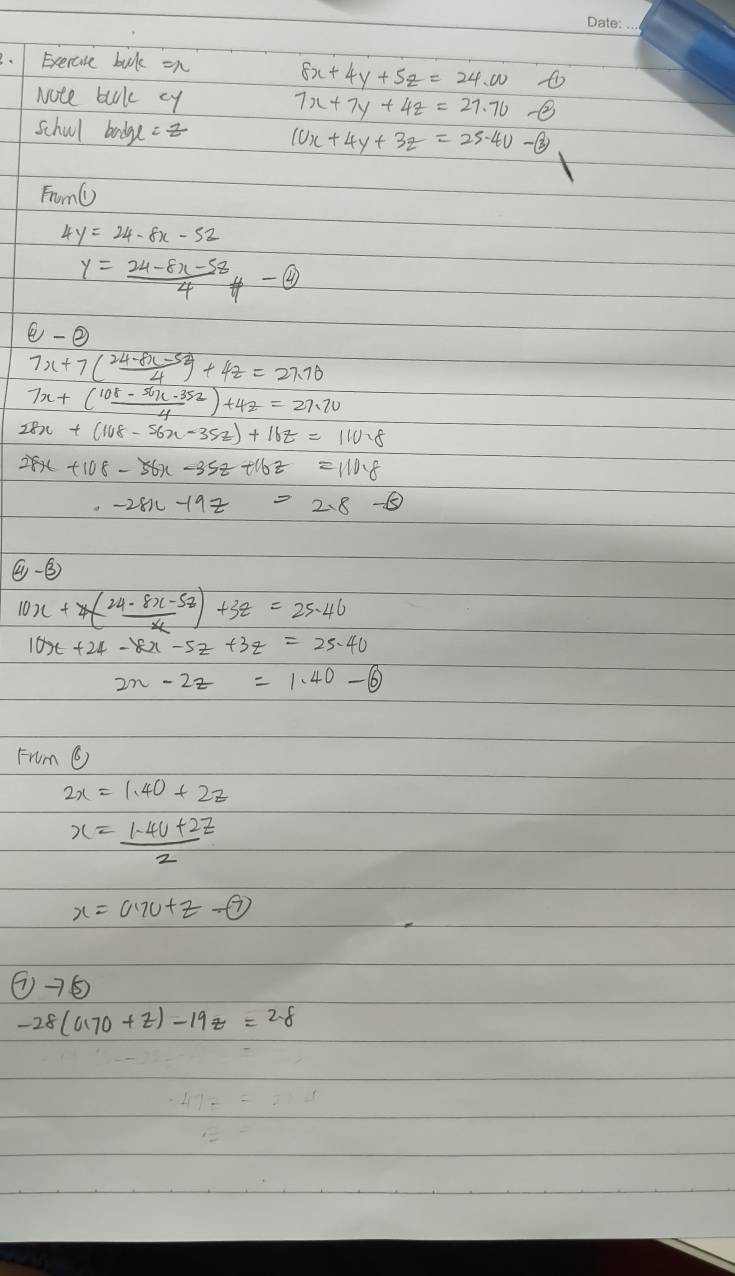 Date: ....
2. Exercise book = x 8x + 4y + 5z = 24.00 - ①
Note book = y 7x + 7y + 4z = 27.70 - ②
School badge = z 10x + 4y + 3z = 25.40 - ③
From ①
4y = 24 - 8x - 5z
y = (24 - 8x - 5z)/4 - ④
④ - ②
7x + 7((24 - 8x - 5z)/4) + 4z = 27.70
7x + ((108 - 56x - 35z)/4) + 4z = 27.70
28x + (108 - 56x - 35z) + 16z = 110.8
28x + 108 - 56x - 35z + 16z = 110.8
-28x - 19z = 2.8 - ⑤
④ - ③
10x + 4((24 - 8x - 5z)/4) + 3z = 25.40
10x + 24 - 8x - 5z + 3z = 25.40
2x - 2z = 1.40 - ⑥
From ⑥
2x = 1.40 + 2z
x = (1.40 + 2z)/2
x = 0.70 + z - ⑦
⑦ → ⑤
-28(0.70 + z) - 19z = 2.8